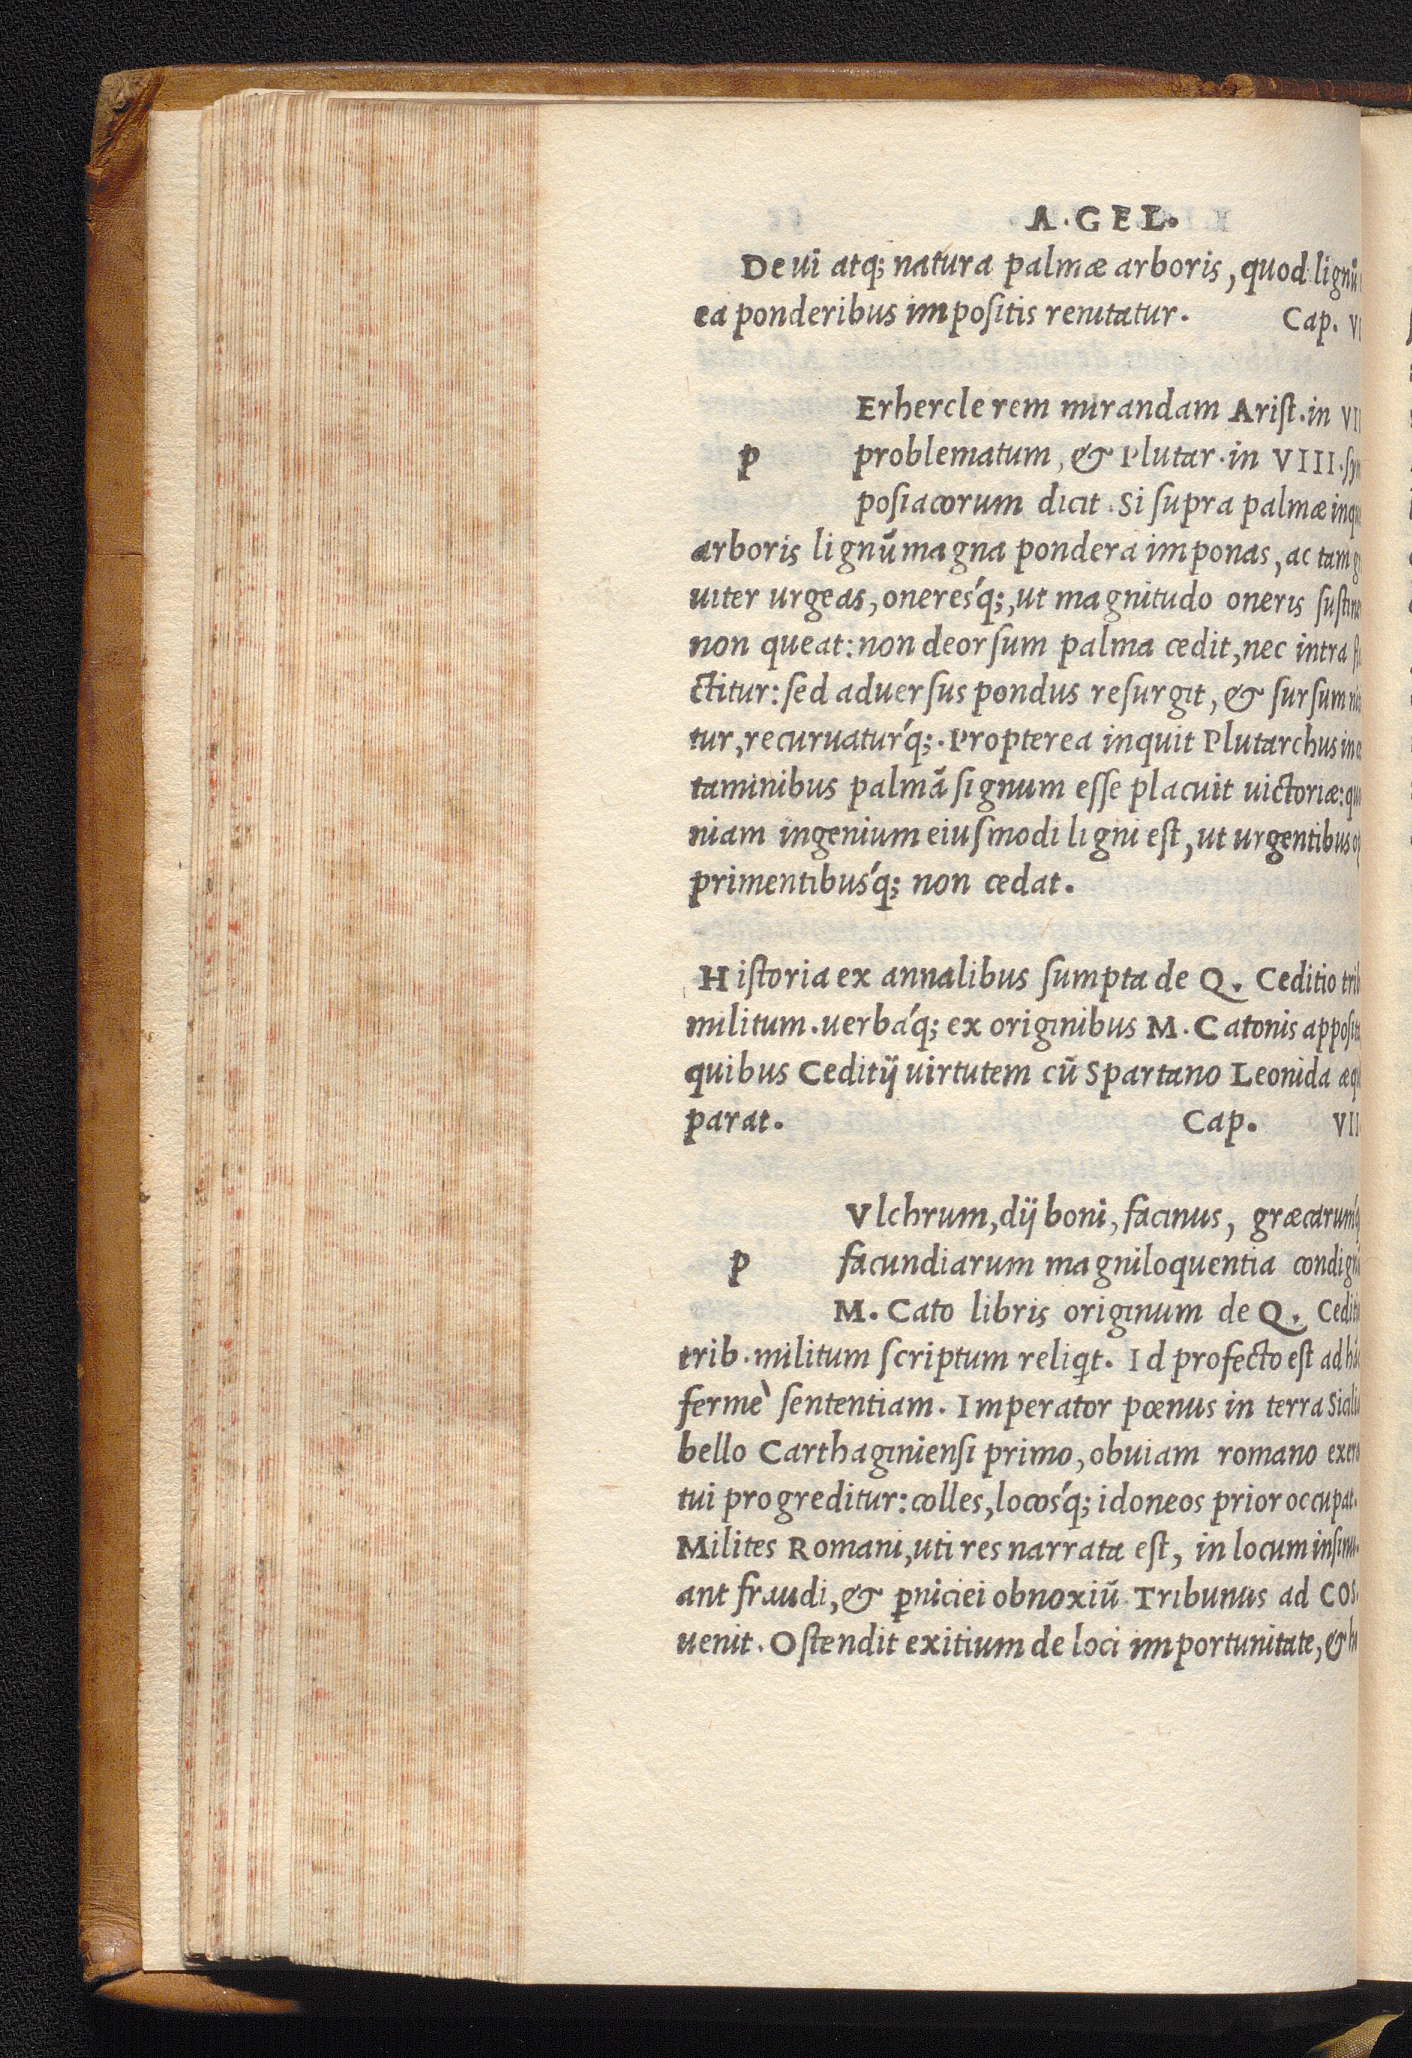 A.GEL.
De ui atq; natura palmæ arboris, quod lignũ
ea ponderibus impositis renitatur. Cap. VI
Erhercle rem mirandam Arist. in VII
p problematum, & Plutar. in VIII. sym
posiacorum dicit. Si supra palmæ inqu
arboris lignũ magna pondera imponas, ac tam g
uiter urgeas, oneres'q;, ut magnitudo oneris sustine
non queat: non deorsum palma cedit, nec intra fle
ctitur: sed aduersus pondus resurgit, & sursum
tur, recuruatur'q;. Propterea inquit Plutarchus in
taminibus palmã signum esse placuit uictoriæ: quo
niam ingenium eiusmodi ligni est, ut urgentibus op
primentibus'q; non cedat.
Historia ex annalibus sumpta de Q. Ceditio trib
militum. uerba'q; ex originibus M. Catonis apposita
quibus Ceditij uirtutem cũ Spartano Leonida æqu
parat. Cap. VII
Vlchrum, dij boni, facinus, græcarum'q
p facundiarum magniloquentia condignũ
M. Cato libris originum de Q. Ceditio
trib. militum scriptum reliqt. Id profecto est ad hãc
fermè sententiam. Imperator pœnus in terra Sicilia
bello Carthaginiensi primo, obuiam romano exerci
tui progreditur: colles, locos'q; idoneos prior occupat.
Milites Romani, uti res narrata est, in locum insinu-
ant fraudi, & ꝑniciei obnoxiũ. Tribunus ad COS.
uenit. Ostendit exitium de loci importunitate, & ho